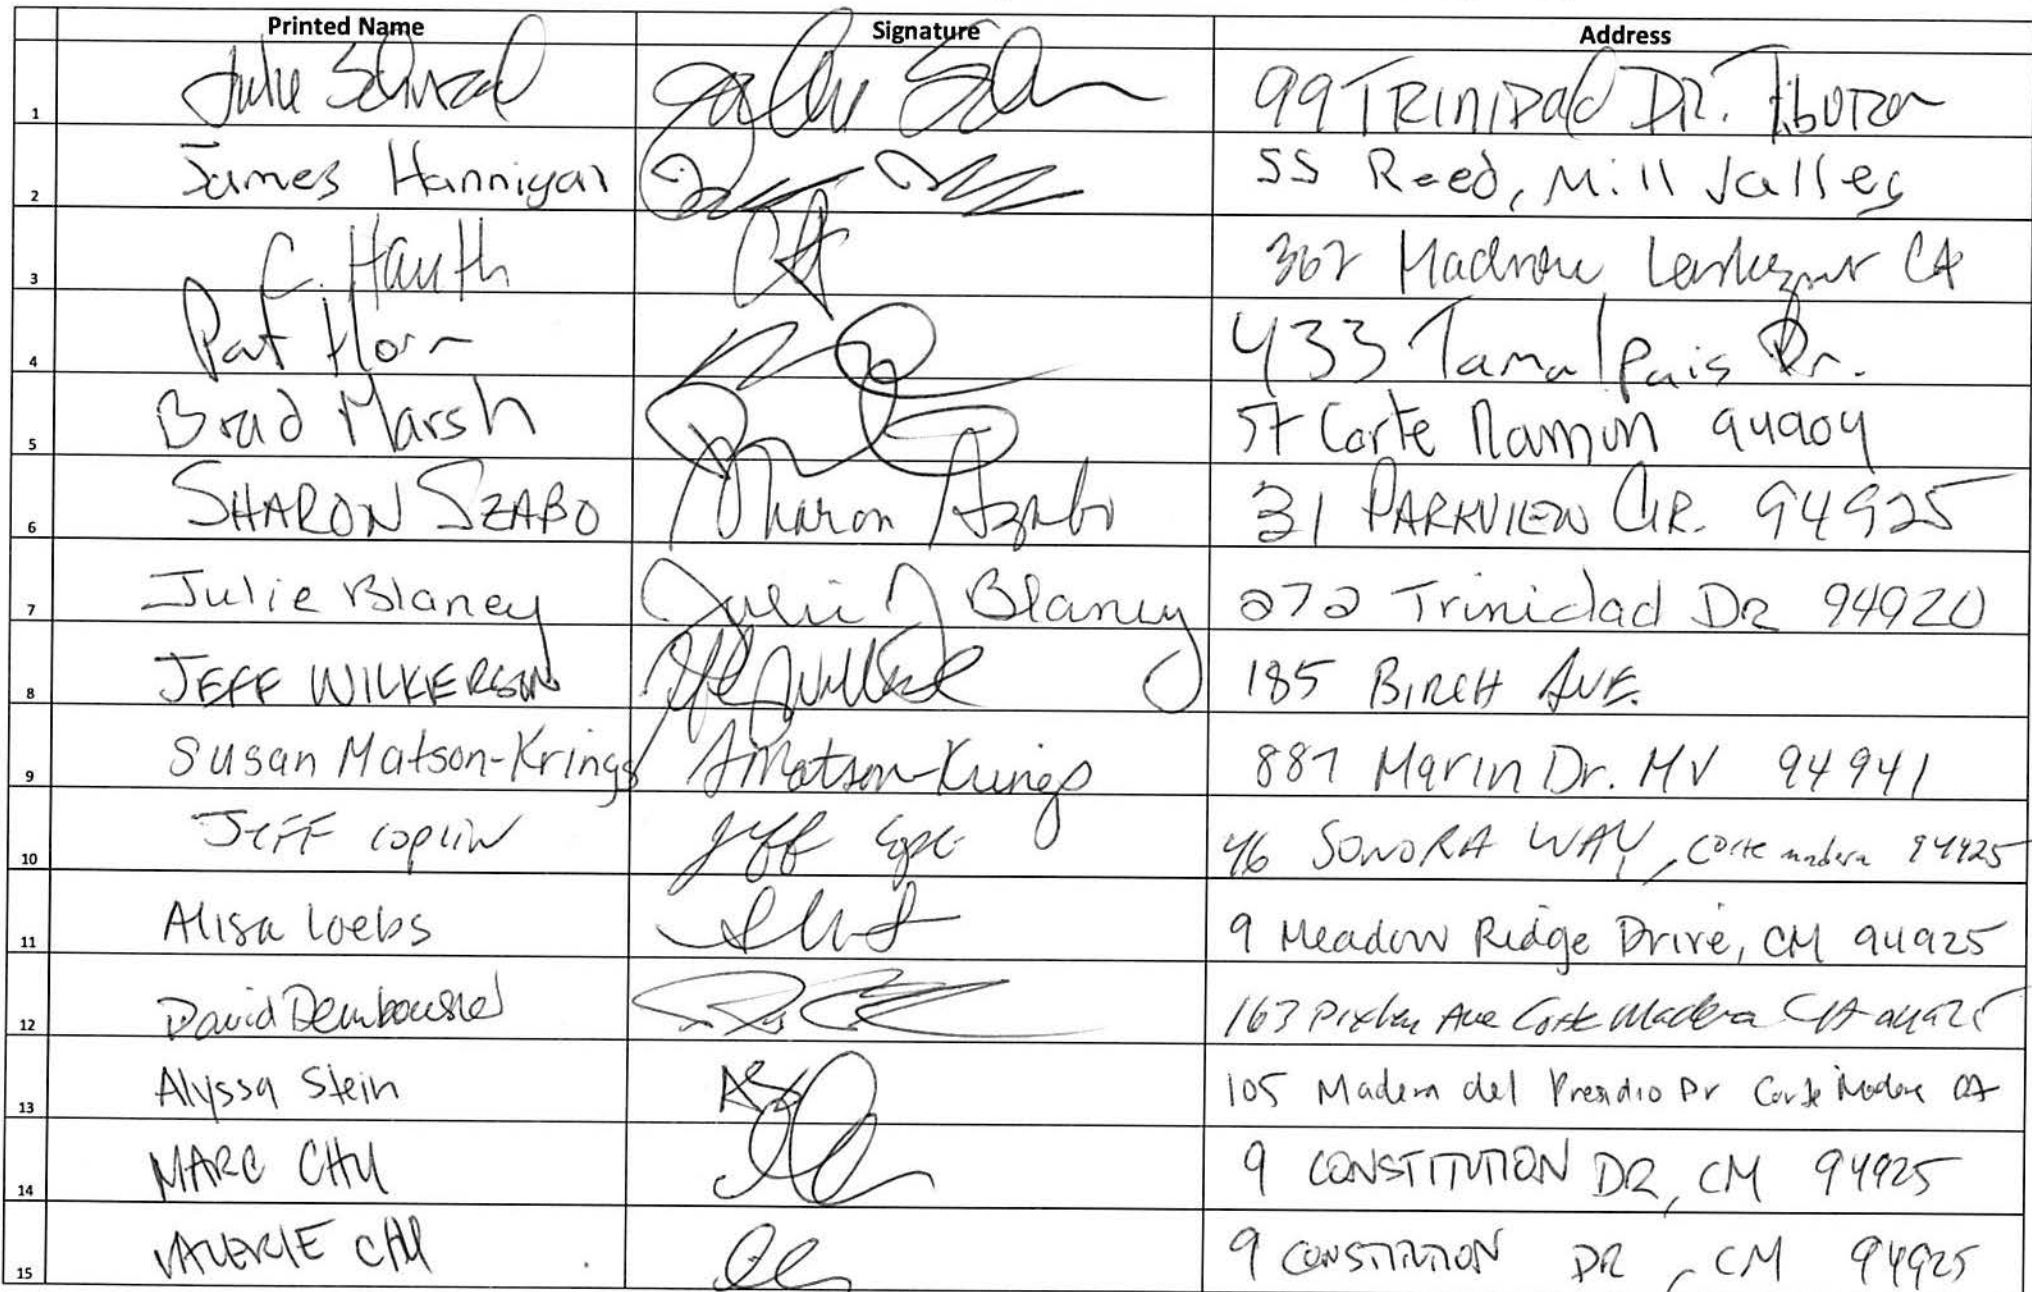 Printed Name Signature Address
1 Julie 99 Trinidad Dr. Tiburon
2 James Hannigan 55 Reed, Mill Valley
3 C. Hauth CH 362 Madrone Larkspur CA
4 Pat Horn 433 Tamalpais Dr.
5 Brad Marsh 57 Corte Ramon 94904
6 SHARON SZABO Sharon Szabo 31 PARKVIEW CIR. 94925
7 Julie Blaney Julie J Blaney 272 Trinidad DR 94920
8 JEFF WILKERSON 185 BIRCH AVE.
9 Susan Matson-Krings SMatson-Krings 887 Marin Dr. MV 94941
10 JEFF coplin Jeff 46 SONORA WAY, Corte madera 94925
11 Alisa Loebs 9 Meadow Ridge Drive, CM 94925
12 David 163 Pixley Ave Corte Madera CA 94925
13 Alyssa Stein AS 105 Madera del Presidio Dr Corte Madera CA
14 MARC CHU 9 CONSTITUTION DR, CM 94925
15 VALERIE CHU 9 CONSTITUTION DR, CM 94925